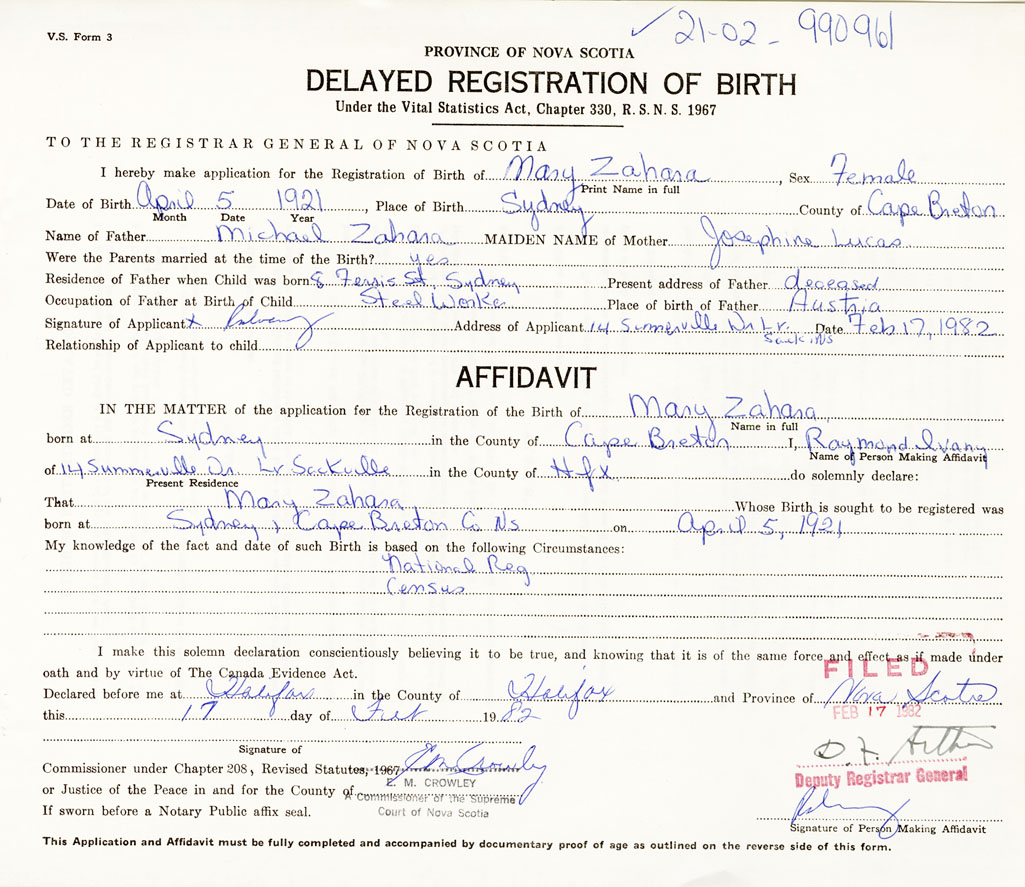 V.S. Form 3
✓ 21-02 - 990961
PROVINCE OF NOVA SCOTIA
DELAYED REGISTRATION OF BIRTH
Under the Vital Statistics Act, Chapter 330, R.S.N.S. 1967
TO THE REGISTRAR GENERAL OF NOVA SCOTIA
I hereby make application for the Registration of Birth of Mary Zahara, Sex Female
Print Name in full
Date of Birth April 5 1921 Place of Birth Sydney County of Cape Breton
Month Date Year
Name of Father Michael Zahara MAIDEN NAME of Mother Josephine Lucas
Were the Parents married at the time of the Birth? yes
Residence of Father when Child was born 8 Ferris St, Sydney Present address of Father deceased
Occupation of Father at Birth of Child Steel Worker Place of birth of Father Austria
Signature of Applicant x Address of Applicant 14 Summerville Dr Lr. Date Feb 17, 1982
Sack. NS
Relationship of Applicant to child
AFFIDAVIT
IN THE MATTER of the application for the Registration of the Birth of Mary Zahara
Name in full
born at Sydney in the County of Cape Breton I, Raymond Ivany
Name of Person Making Affidavit
of 14 Summerville Dr. Lr Sackville in the County of Hfx do solemnly declare:
Present Residence
That Mary Zahara Whose Birth is sought to be registered was
born at Sydney, Cape Breton Co Ns on April 5, 1921
My knowledge of the fact and date of such Birth is based on the following Circumstances:
National Reg
Census
I make this solemn declaration conscientiously believing it to be true, and knowing that it is of the same force and effect as if made under
oath and by virtue of The Canada Evidence Act.
FILED
Declared before me at Halifax in the County of Halifax and Province of Nova Scotia
this 17 day of Feb 1982
FEB 17 1982
Signature of
Commissioner under Chapter 208, Revised Statutes, 1967 E M Crowley
or Justice of the Peace in and for the County of
E. M. CROWLEY
A Commissioner of the Supreme
Court of Nova Scotia
If sworn before a Notary Public affix seal.
Deputy Registrar General
Signature of Person Making Affidavit
This Application and Affidavit must be fully completed and accompanied by documentary proof of age as outlined on the reverse side of this form.